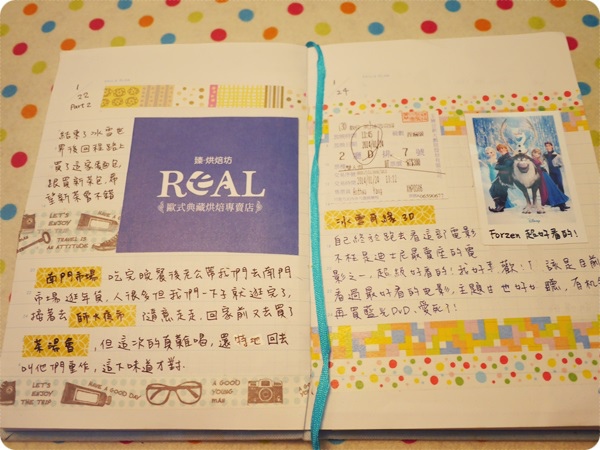 1
22
Part 2
結束了冰雪世
界後回程路上
買了這家麵包
跟買新菜包,希
望新菜當不錯
臻·烘焙坊
REAL
歐式典藏烘焙專賣店
LET'S
ENJOY
THE TRIP
TRAVEL IS
AN ATTITUDE
南門市場 吃完晚餐後老公帶我們去南門
市場逛年貨,人很多但我們一下子就逛完了,
接著去 師大夜市 隨意走走,回家前又去買了
茶湯會,但這次的真難喝,還特地回去
叫他們重作,這下味道才對.
LET'S
ENJOY
THE TRIP
HAVE A GOOD DAY
A GOOD
YOUNG
MAN
LET'S
ENJOY
1
24
2 D 7號
冰雪奇緣 3D
自己終於跑去看這部電影
不枉是迪士尼最賣座的電
影之一,超級好看的!我好喜歡!該是目前
看過最好看的電影,主題曲也好好聽,有機會
再買藍光DVD,愛死了!
Disney
Forzen 超好看的!